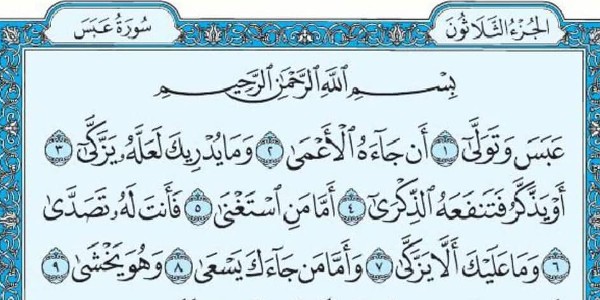 الجزء الثلاثون سورة عبس
بِسْمِ ٱللَّهِ ٱلرَّحْمَٰنِ ٱلرَّحِيمِ
عَبَسَ وَتَوَلَّىٰٓ ١ أَن جَآءَهُ ٱلْأَعْمَىٰ ٢ وَمَا يُدْرِيكَ لَعَلَّهُۥ يَزَّكَّىٰٓ ٣
أَوْ يَذَّكَّرُ فَتَنفَعَهُ ٱلذِّكْرَىٰٓ ٤ أَمَّا مَنِ ٱسْتَغْنَىٰ ٥ فَأَنتَ لَهُۥ تَصَدَّىٰ
٦ وَمَا عَلَيْكَ أَلَّا يَزَّكَّىٰ ٧ وَأَمَّا مَن جَآءَكَ يَسْعَىٰ ٨ وَهُوَ يَخْشَىٰ ٩